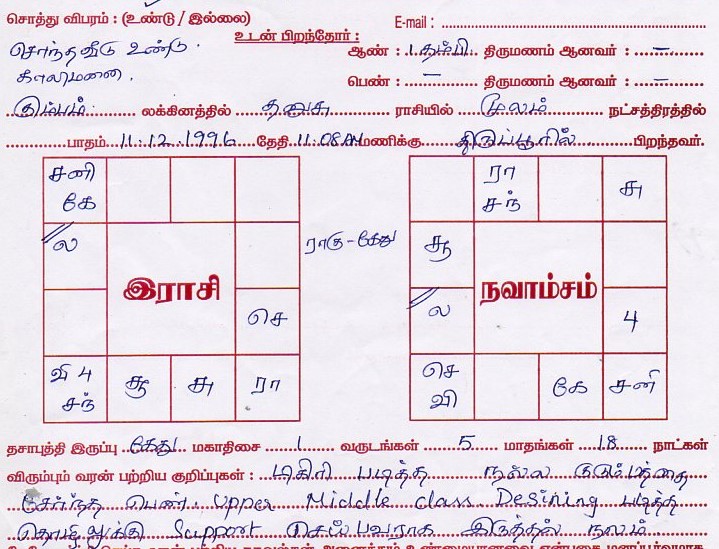 சொத்து விபரம் : (உண்டு / இல்லை) E-mail :
சொந்தவீடு உண்டு. உடன் பிறந்தோர் : ஆண் : 1 தம்பி திருமணம் ஆனவர் : –
காலிமனை. பெண் : – திருமணம் ஆனவர் : –
கும்பம் லக்கினத்தில் தனுசு ராசியில் மூலம் நட்சத்திரத்தில்
பாதம் 11.12.1996 தேதி 11.08AM மணிக்கு திருப்பூரில் பிறந்தவர்.
சனி
கே
ல
இராசி
செ
வி 4
சந்
சூ
சு
ரா
ராகு-கேது
ரா
சந்
சு
சூ
ல
நவாம்சம்
4
செ
வி
கே
சனி
தசாபுத்தி இருப்பு கேது மகாதிசை 1 வருடங்கள் 5 மாதங்கள் 18 நாட்கள்
விரும்பும் வரன் பற்றிய குறிப்புகள் : டிகிரி படித்த நல்ல குடும்பத்தை
சேர்ந்த பெண். Upper Middle Class Desining படித்த
தொழிலுக்கு Support செய்பவராக இருத்தல் நலம்